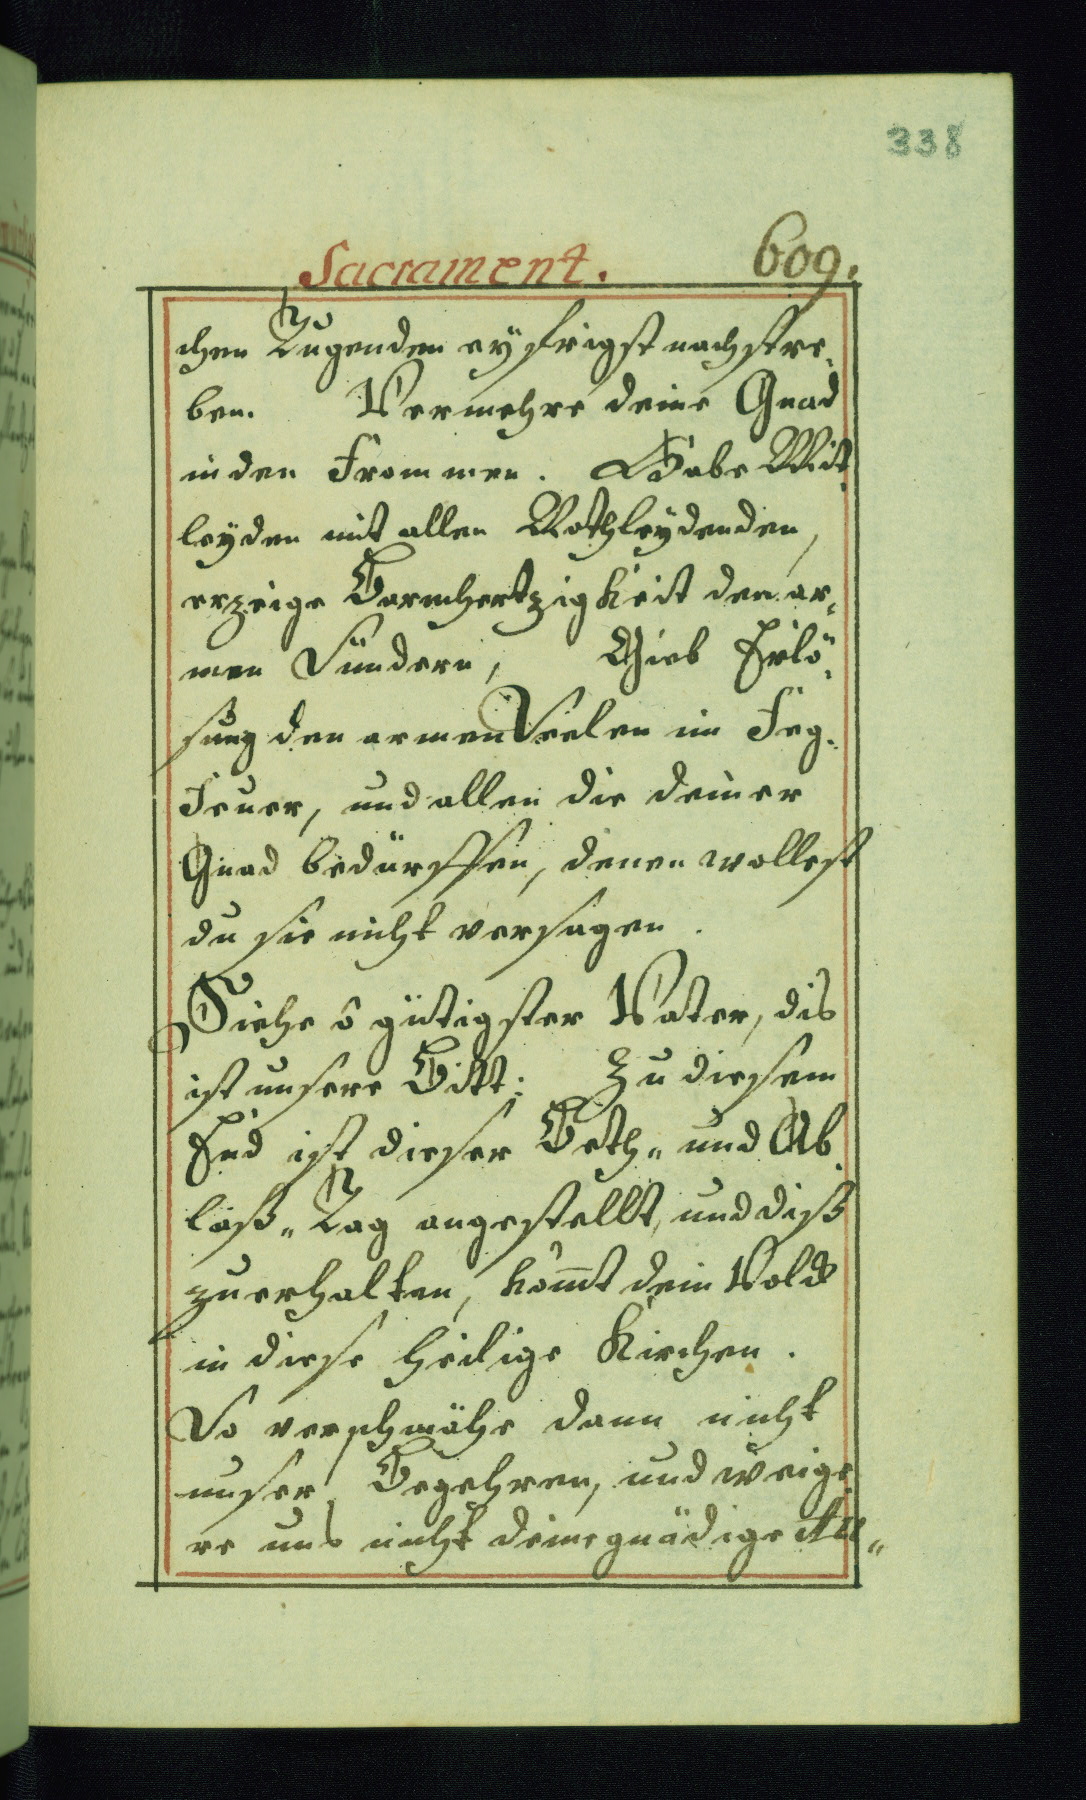 338
Sacrament. 609.
chen Tugenden eyfrigst nachstre„
ben. Vermehre deine Gnad
in den Frommen. Habe Mit„
leyden mit allen Nothleydenden,
erzeige Barmhertzigkeit den ar„
men Sündern, Gieb Erlö„
sung den armen Seelen im Feg„
Feuer, und allen die deiner
Gnad bedürffen, denen wollest
du sie nicht versagen.
Siehe ô gütigster Vater, dis
ist unsere Bitt: Zu diesem
End ist dieser Beth„ und Ab„
laß„ Tag angestellt, und diß
zuerhalten, kom̄t dein Volck
in diese heilige Kirchen.
So verschmähe dann nicht
unser Begehren, und weige„
re uns nicht deine gnädige An„